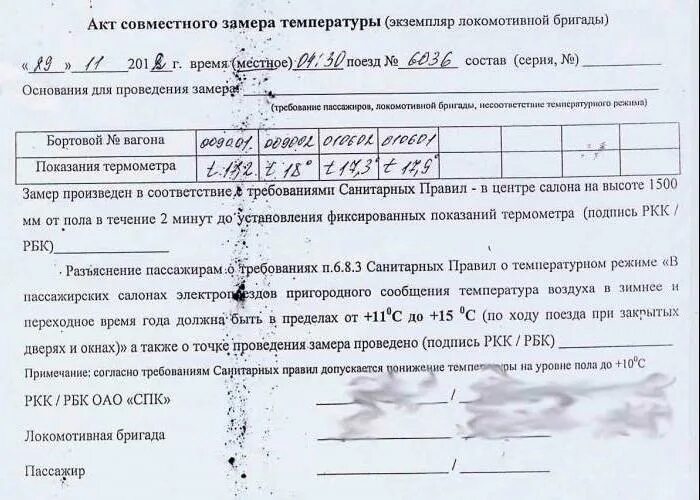 Акт совместного замера температуры (экземпляр локомотивной бригады)
«29» 11 2012 г. время (местное) 04:30 поезд № 6036 состав (серия, №)
Основания для проведения замера
(требование пассажиров, локомотивной бригады, несоответствие температурного режима)
Бортовой № вагона 009001 009002 010602 010601
Показания термометра t 17,2 t 18° t 17,3° t 17,5°
Замер произведен в соответствие с требованиями Санитарных Правил - в центре салона на высоте 1500
мм от пола в течение 2 минут до установления фиксированных показаний термометра (подпись РКК /
РБК)
Разъяснение пассажирам о требованиях п.6.8.3 Санитарных Правил о температурном режиме «В
пассажирских салонах электропоездов пригородного сообщения температура воздуха в зимнее и
переходное время года должна быть в пределах от +11⁰С до +15 ⁰С (по ходу поезда при закрытых
дверях и окнах)» а также о точке проведения замера проведено (подпись РКК / РБК)
Примечание: согласно требованиям Санитарных правил допускается понижение температуры на уровне пола до +10⁰С
РКК / РБК ОАО «СПК» /
Локомотивная бригада /
Пассажир /